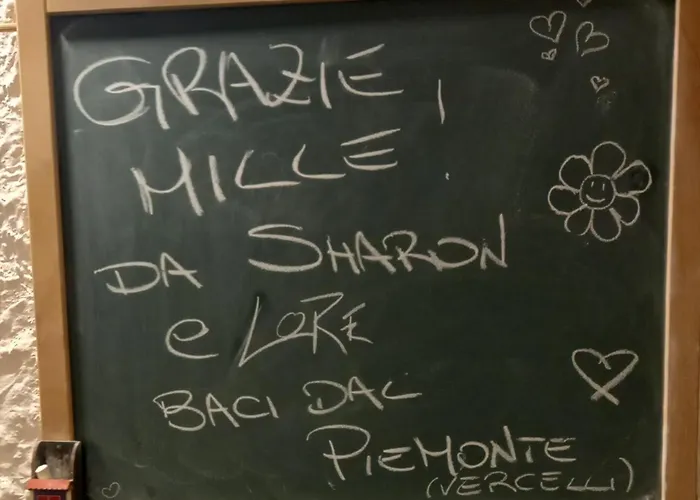 GRAZIE
MILLE !
DA SHARON
e LORE
BACI DAL
PIEMONTE
(VERCELLI)